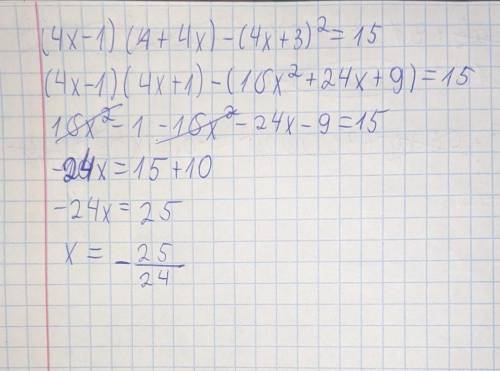 (4x-1)(1+4x)-(4x+3)²=15
(4x-1)(4x+1)-(16x²+24x+9)=15
16x²-1-16x²-24x-9=15
-24x=15+10
-24x=25
x=-25/24